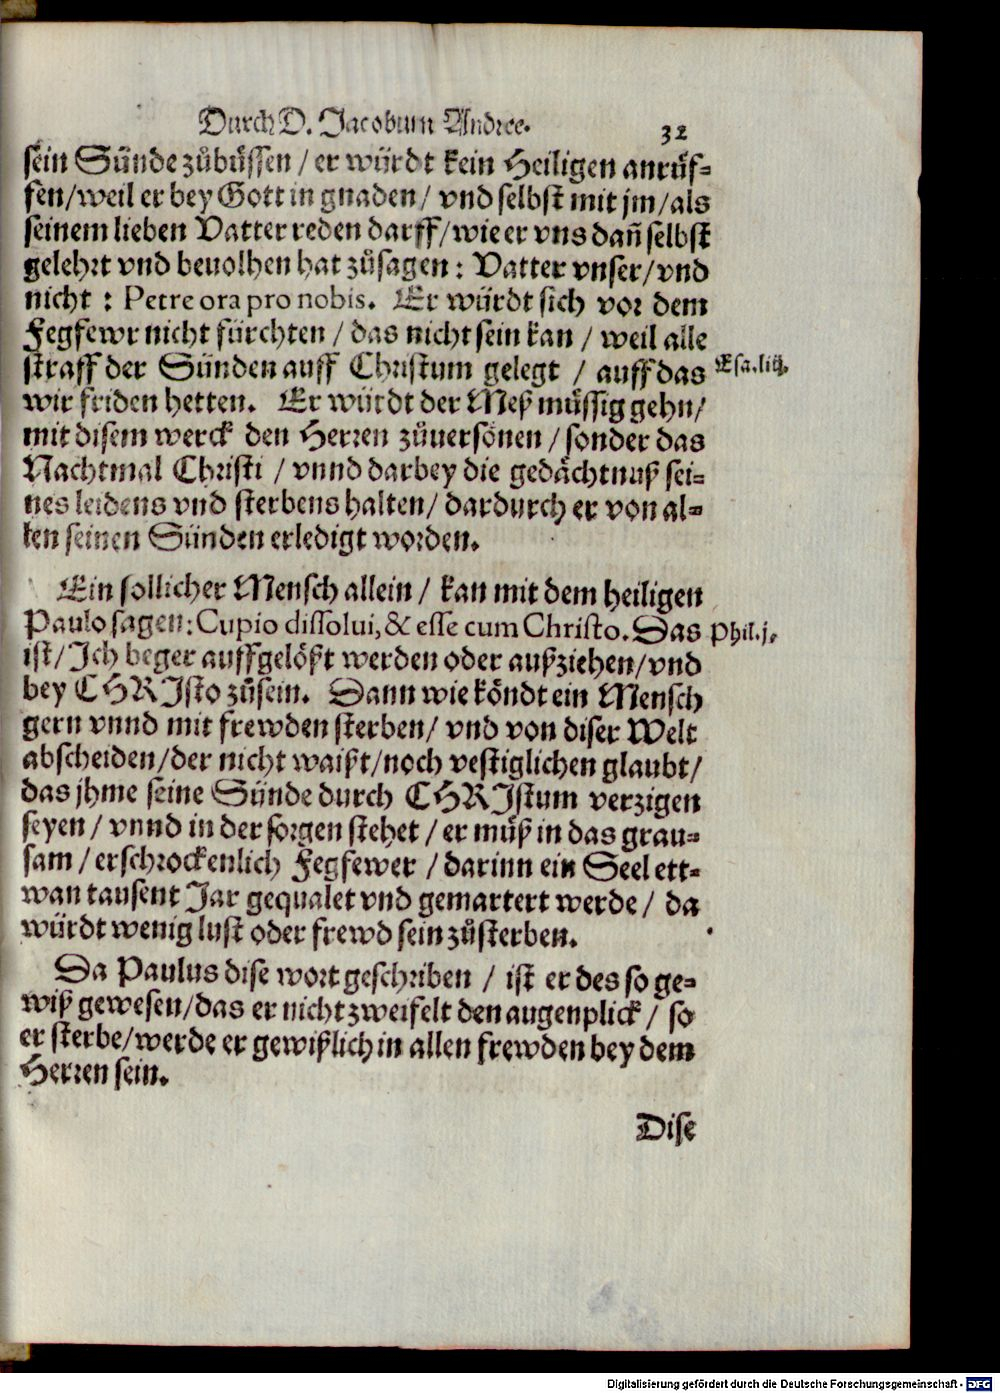 Durch D. Jacobum Andree. 32
sein Sünde zůbüssen / er würdt kein Heiligen anrůf-
fen/weil er bey Gott in gnaden/ vnd selbst mit jm/als
seinem lieben Vatter reden darff/wie er vns dañ selbst
gelehrt vnd beuolhen hat zůsagen: Vatter vnser/vnd
nicht : Petre ora pro nobis. Er würdt sich vor dem
Fegfewr nicht fürchten / das nicht sein kan / weil alle
straff der Sünden auff Christum gelegt / auff das
Esa.liij.
wir friden hetten. Er würdt der Meß müssig gehn/
mit disem werck den Herren zůuersönen / sonder das
Nachtmal Christi / vnnd darbey die gedächtnuß sei-
nes leidens vnd sterbens halten/ dardurch er von al-
len seinen Sünden erledigt worden.
Ein sollicher Mensch allein / kan mit dem heiligen
Paulo sagen: Cupio dissolui, & esse cum Christo. Das
Phil.j.
ist/ Ich beger auffgelößt werden oder außziehen/vnd
bey CHRIsto zůsein. Dann wie köndt ein Mensch
gern vnnd mit frewden sterben/ vnd von diser Welt
abscheiden/der nicht waißt/noch vestiglichen glaubt/
das jhme seine Sünde durch CHRIstum verzigen
seyen / vnnd in der sorgen stehet / er müß in das grau-
sam / erschrockenlich Fegfewer / darinn ein Seel ett-
wan tausent Jar gequalet vnd gemartert werde / da
würdt wenig lust oder frewd sein zůsterben.
Da Paulus dise wort geschriben / ist er des so ge-
wiß gewesen/das er nicht zweifelt den augenplick / so
er sterbe/werde er gewißlich in allen frewden bey dem
Herren sein.
Dise
Digitalisierung gefördert durch die Deutsche Forschungsgemeinschaft - DFG